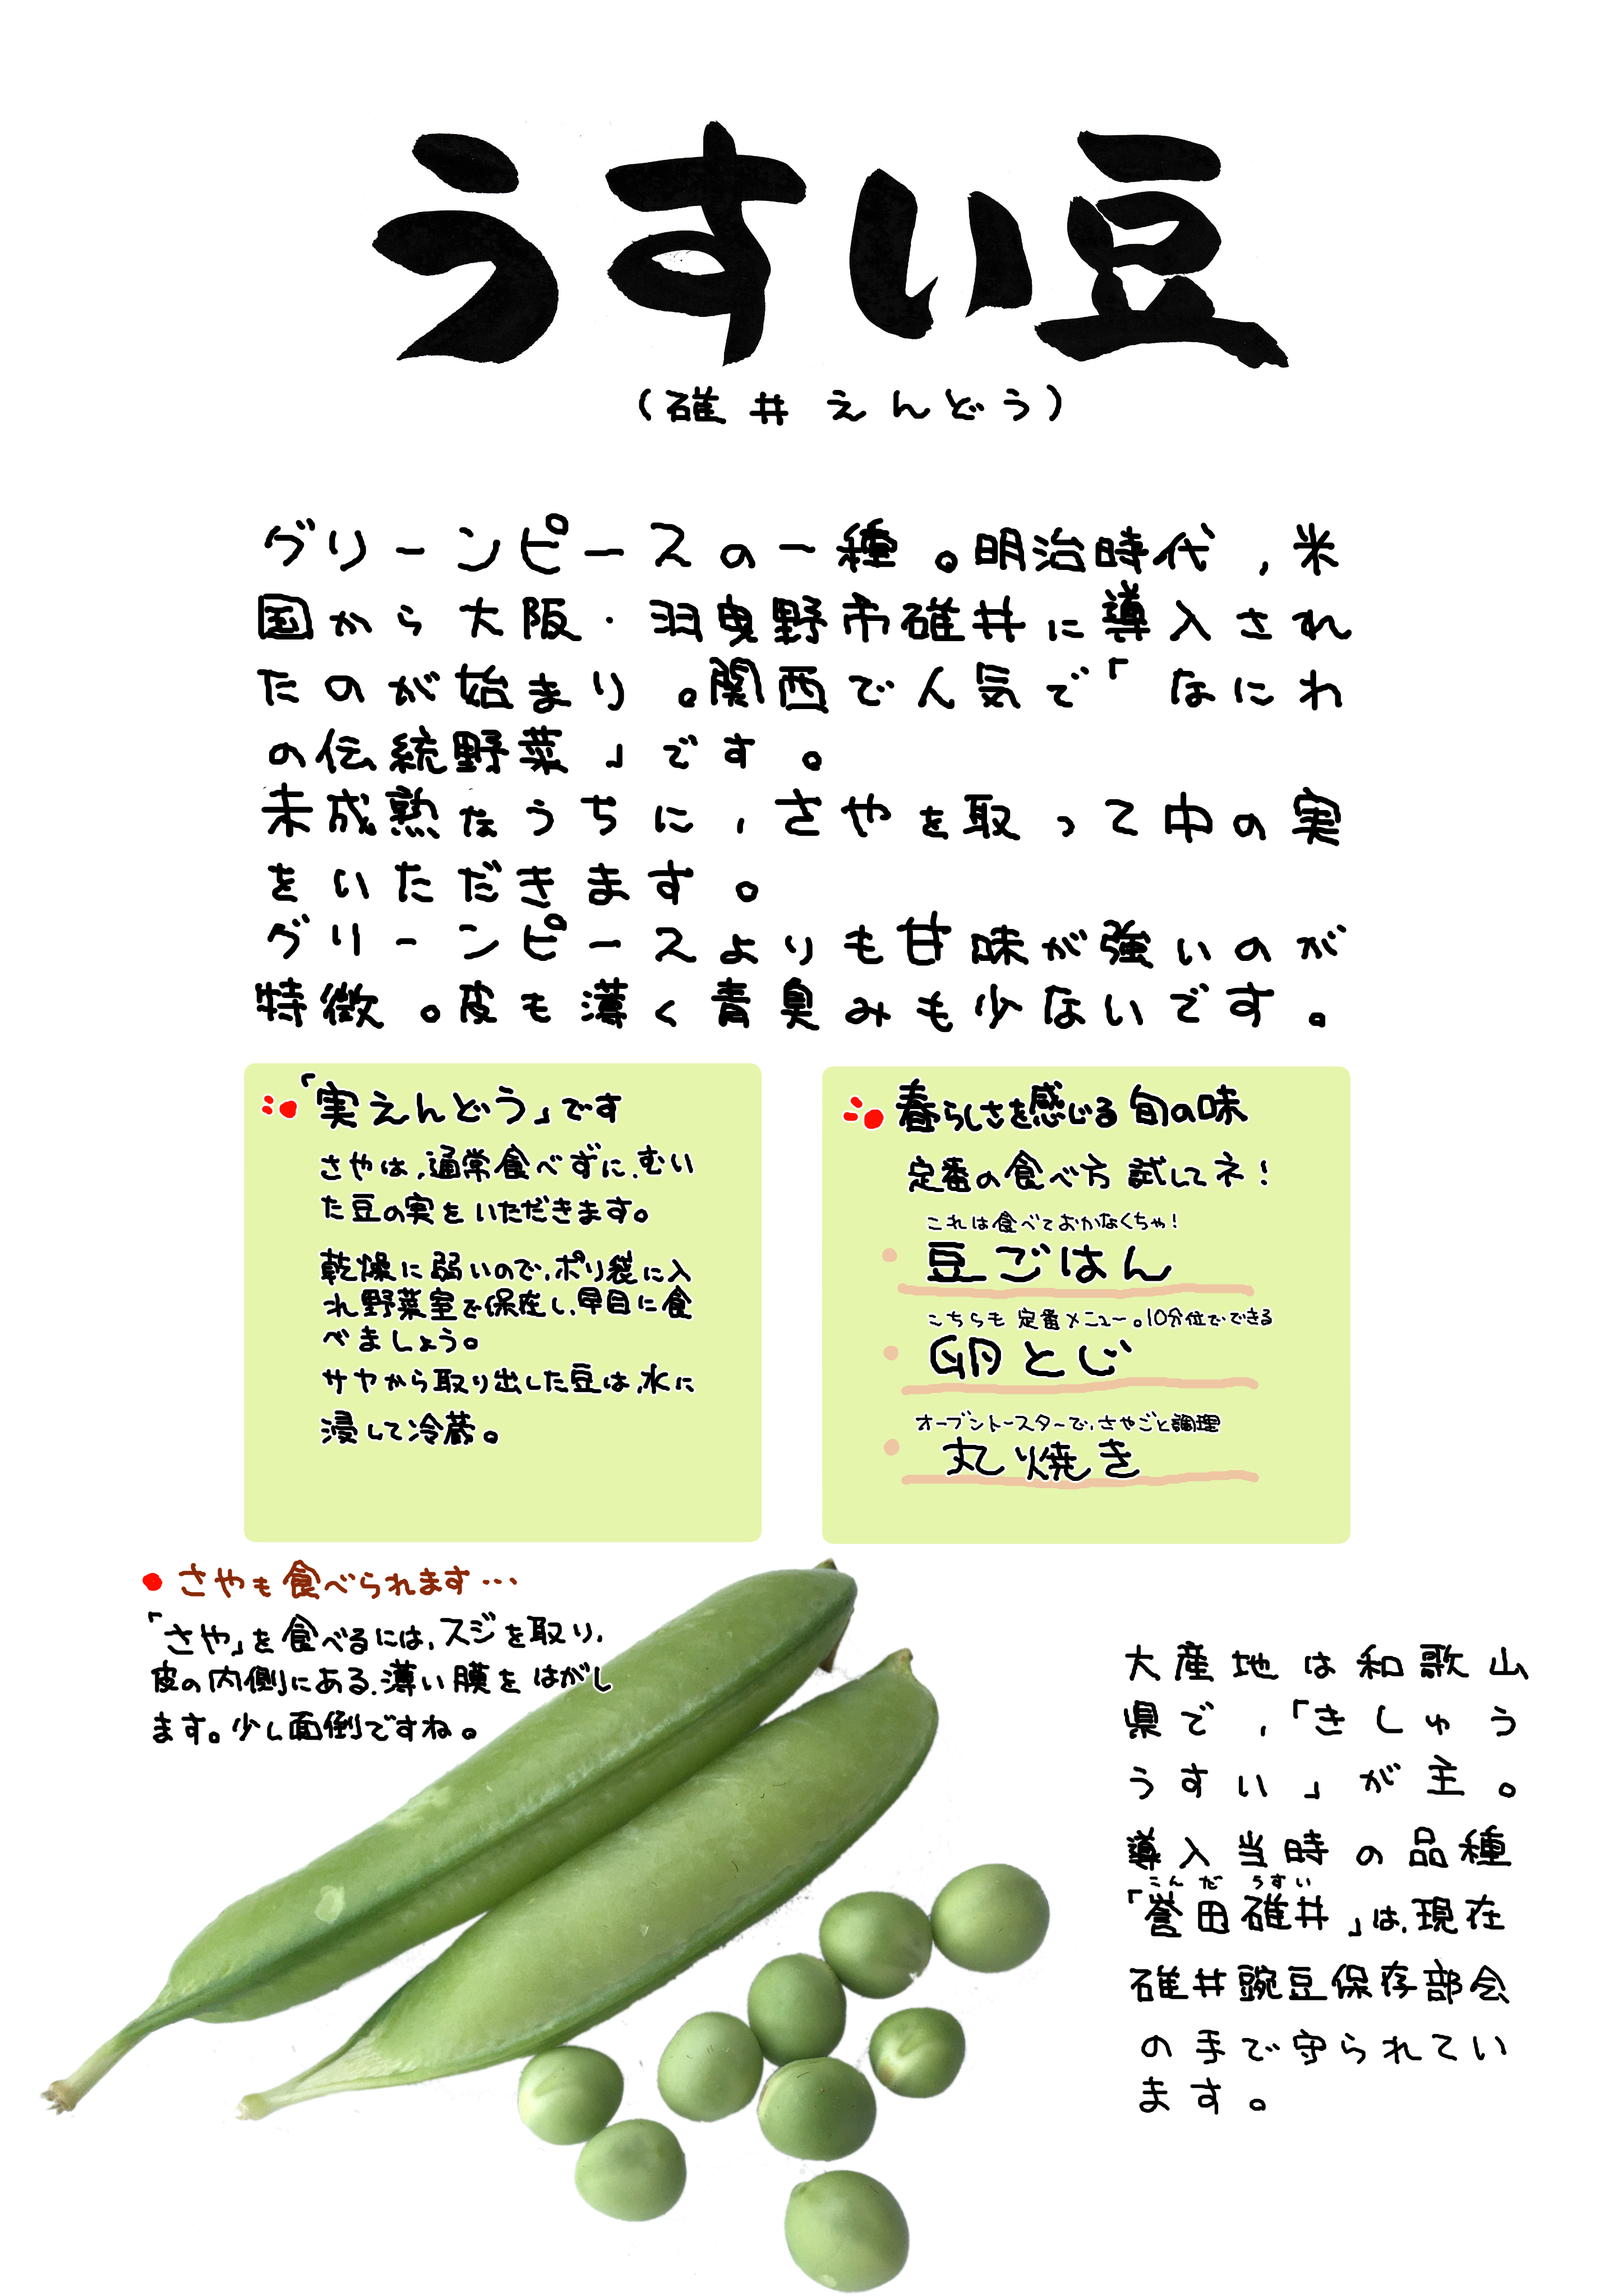 うすい豆
（碓井えんどう）
グリーンピースの一種。明治時代，米
国から大阪・羽曳野市碓井に導入され
たのが始まり。関西で人気で「なにわ
の伝統野菜」です。
未成熟なうちに，さやを取って中の実
をいただきます。
グリーンピースよりも甘味が強いのが
特徴。皮も薄く青臭みも少ないです。
「実えんどう」です
さやは，通常食べずに，むい
た豆の実をいただきます。
乾燥に弱いので，ポリ袋に入
れ野菜室で保存し，早目に食
べましょう。
サヤから取り出した豆は，水に
浸して冷蔵。
春らしさを感じる旬の味
定番の食べ方 試してネ！
これは食べておかなくちゃ！
豆ごはん
こちらも 定番メニュー。10分位でできる
卵とじ
オーブントースターで，さやごと調理
丸焼き
さやも食べられます…
「さや」を食べるには，スジを取り，
皮の内側にある，薄い膜をはがし
ます。少し面倒ですね。
大産地は和歌山
県で，「きしゅう
うすい」が主。
導入当時の品種
こんだ うすい
「誉田碓井」は，現在
碓井豌豆保存部会
の手で守られてい
ます。